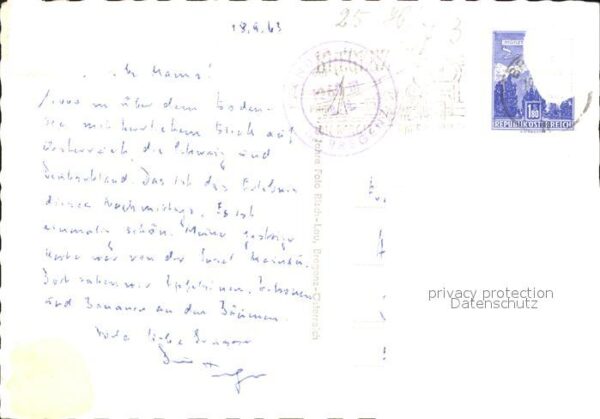 18.9.63
Mama!
1000 m über dem Boden-
see mit herrlichem Blick auf
Österreich, die Schweiz und
Deutschland. Das ist das Erlebnis
dieses Nachmittags. Es ist
einmalig schön. Meine gestrige
Karte war von der Insel Mainau.
Dort sahen wir Apfelsinen, Zitronen
und Bananen an den Bäumen.
Viele liebe Grüsse
BREGENZ
Foto Risch-Lau, Bregenz-Österreich
1.80
REPUBLIK ÖSTERREICH
privacy protection
Datenschutz